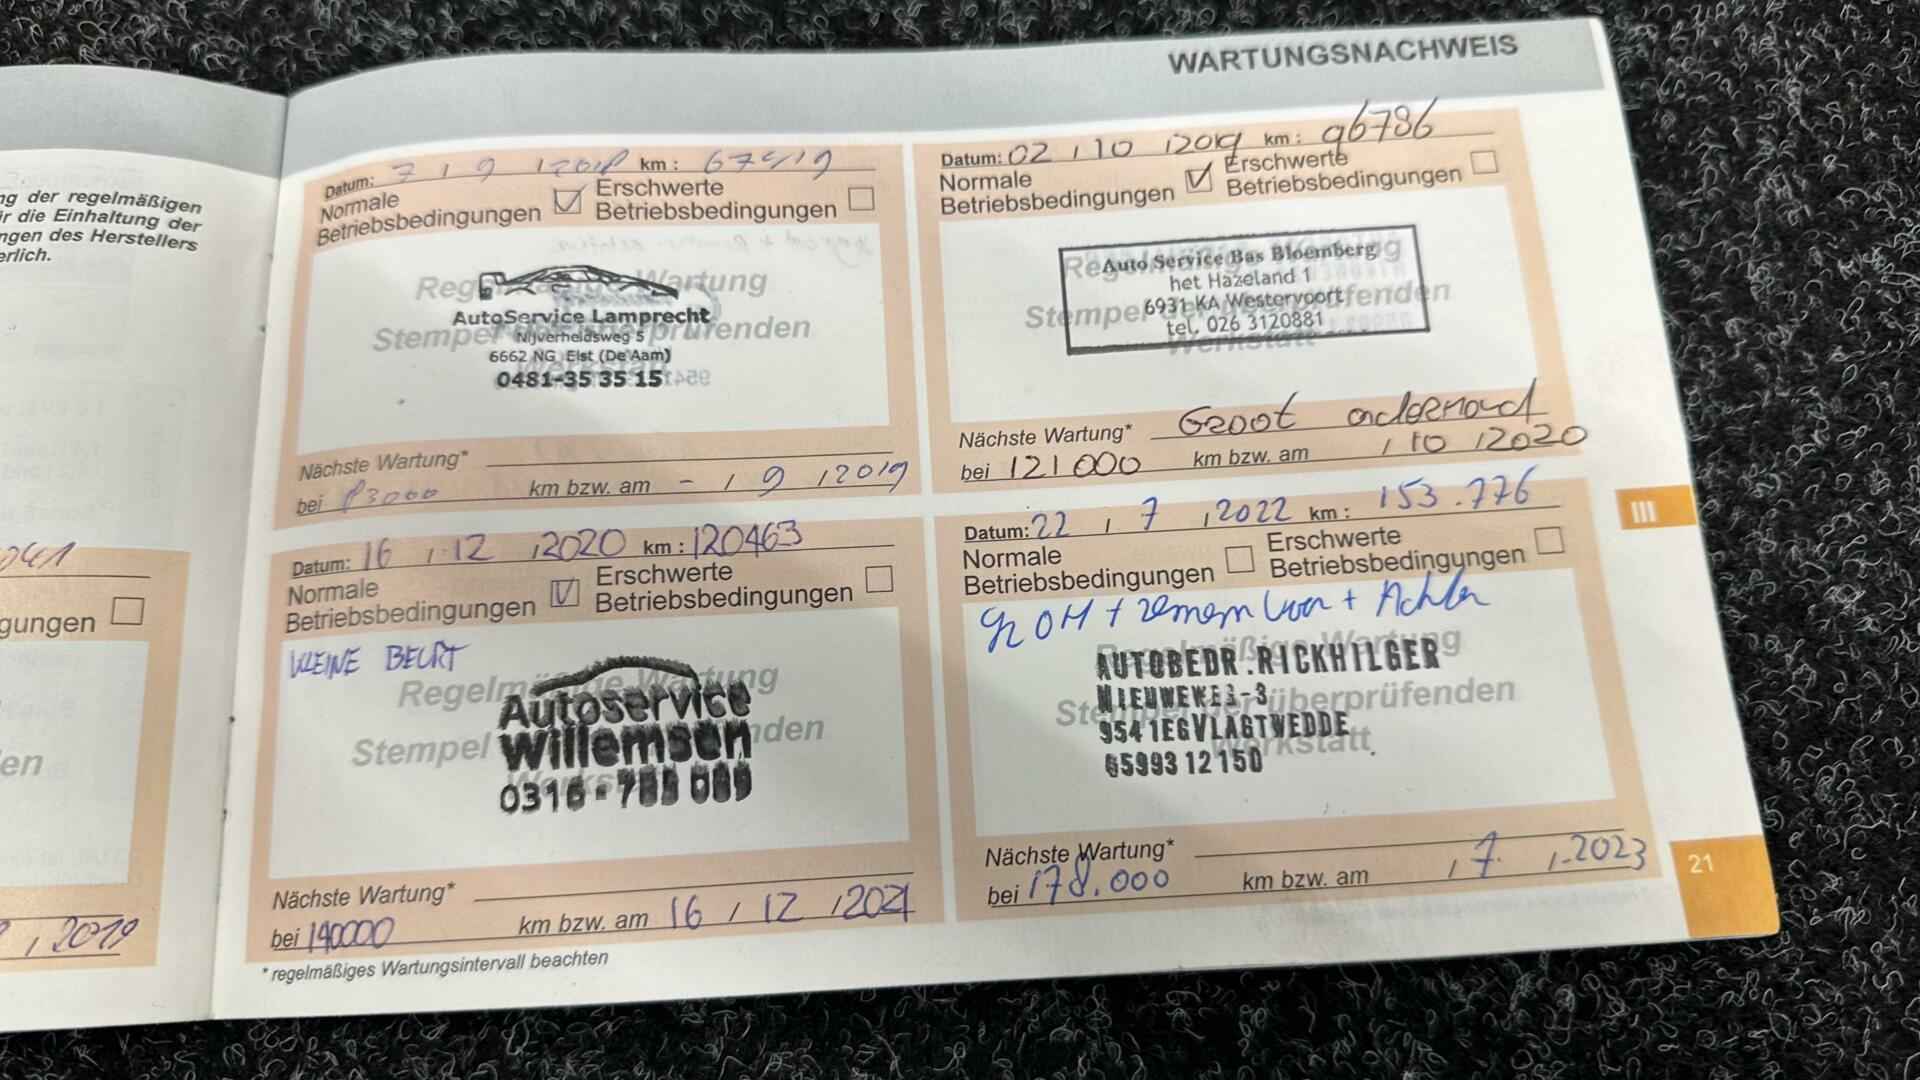 WARTUNGSNACHWEIS
ng der regelmäßigen
r die Einhaltung der
ngen des Herstellers
erlich.
041
gungen
en
, 2019
Datum: 7 / 9 / 2018 km : 67519
Normale
Betriebsbedingungen
Erschwerte
Betriebsbedingungen
Regelmäßige Wartung
Stempel der überprüfenden
Werkstatt
AutoService Lamprecht
Nijverheidsweg 5
6662 NG Elst (De Aam)
0481-35 35 15
Nächste Wartung*
bei 83000 km bzw. am - / 9 / 2019
Datum: 02 / 10 / 2019 km : 96786
Normale
Betriebsbedingungen
Erschwerte
Betriebsbedingungen
Regelmäßige Wartung
Stempel der überprüfenden
Werkstatt
Auto Service Bas Bloemberg
het Hazeland 1
6931 KA Westervoort
tel. 026 3120881
Nächste Wartung* Groot onderhoud
bei 121000 km bzw. am / 10 / 2020
Datum: 16 / 12 / 2020 km : 120463
Normale
Betriebsbedingungen
Erschwerte
Betriebsbedingungen
KLEINE BEURT
Regelmäßige Wartung
Stempel der überprüfenden
Werkstatt
Autoservice
Willemsen
0316 -
Nächste Wartung*
bei 140000 km bzw. am 16 / 12 / 2021
Datum: 22 / 7 / 2022 km : 153.776
Normale
Betriebsbedingungen
Erschwerte
Betriebsbedingungen
gr OH + remmen voor + Achter
Regelmäßige Wartung
Stempel der überprüfenden
Werkstatt
AUTOBEDR.RICKHILGER
9541EGVLAGTWEDDE
0599312150
Nächste Wartung*
bei 178.000 km bzw. am / 7 / 2023
* regelmäßiges Wartungsintervall beachten
III
21